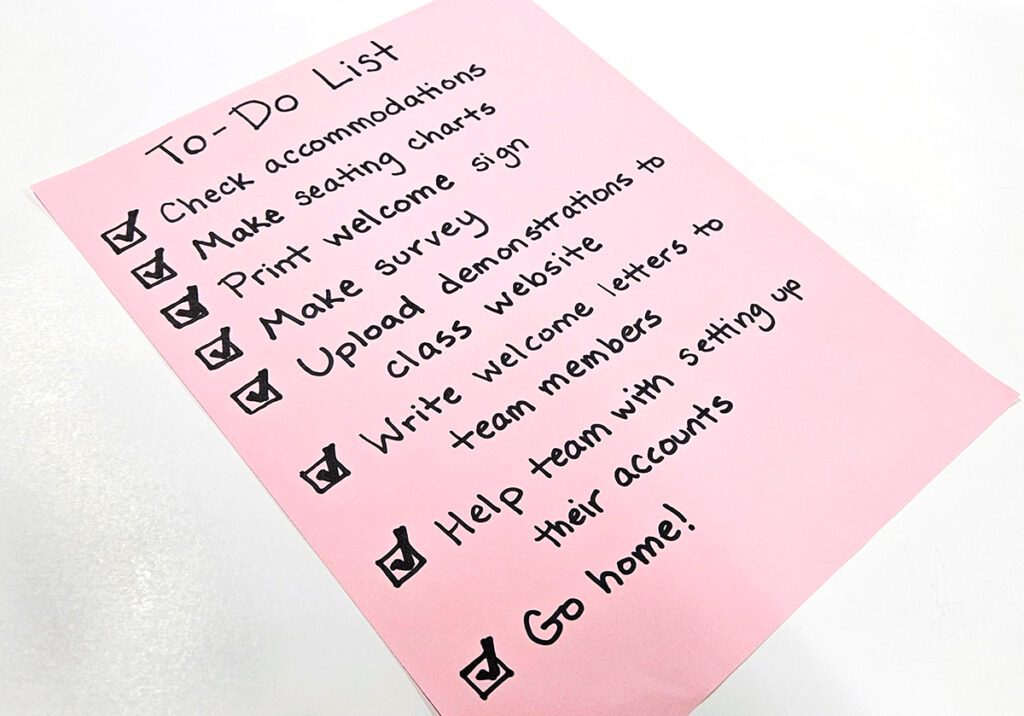 To-Do List
Check accommodations
Make seating charts
Print welcome sign
Make survey
Upload demonstrations to
class website
Write welcome letters to
team members
Help team with setting up
their accounts
Go home!